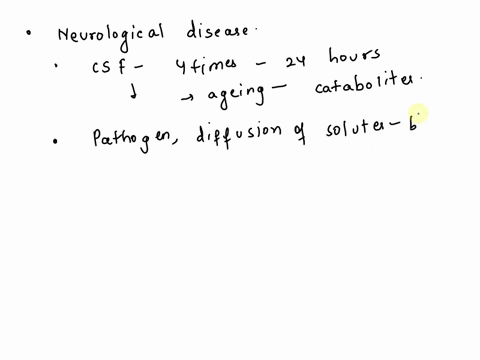 • Neurological disease.
• CSF - 4 times - 24 hours
↓ → ageing - catabolites.
• Pathogen, diffusion of solutes - b